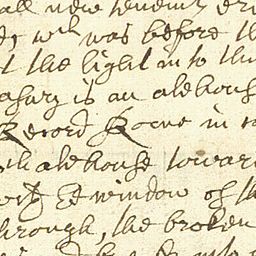 all new tenemt er
wch was before th
t the light in to th
asury is an alehouse
Record Roome in
alehouse towar
window of th
through, the broken